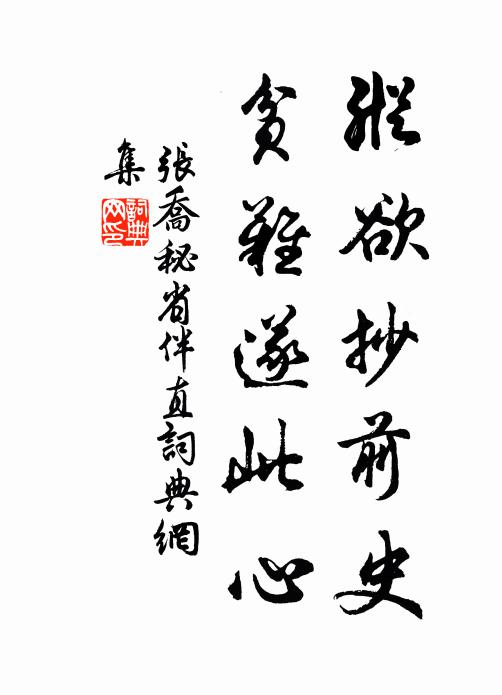 縱欲抄前史
貧難遂此心
張喬秘省伴直詞典網
集
詞典
网印